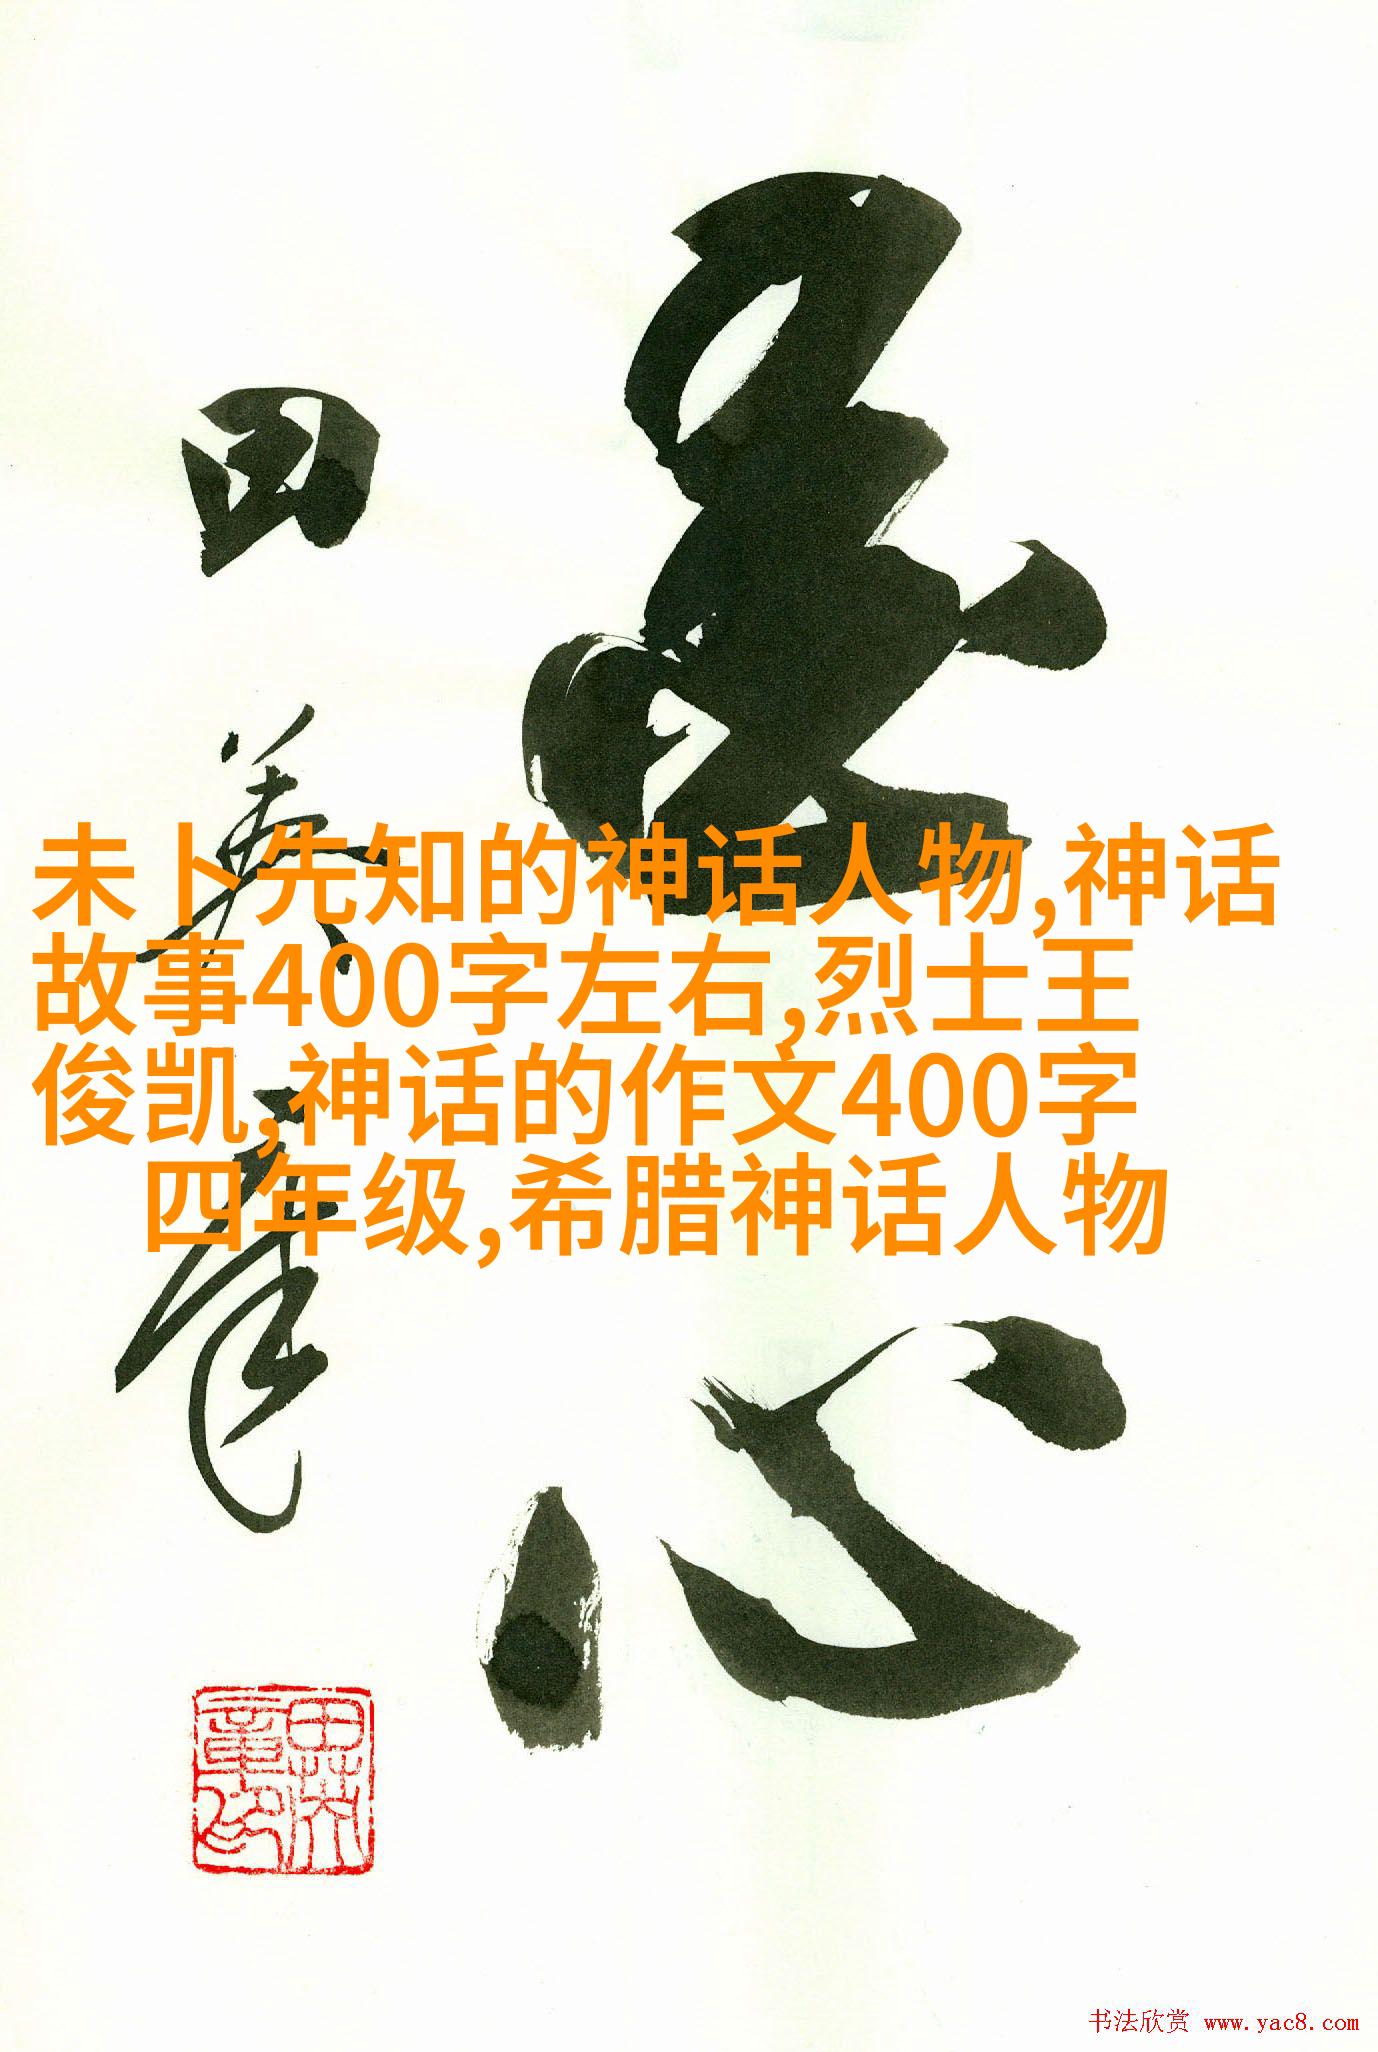 田
英
章
未卜先知的神话人物,神话
故事400字左右,烈士王
俊凯,神话的作文400字
四年级,希腊神话人物
心
田英章印
书法欣赏 www.yac8.com